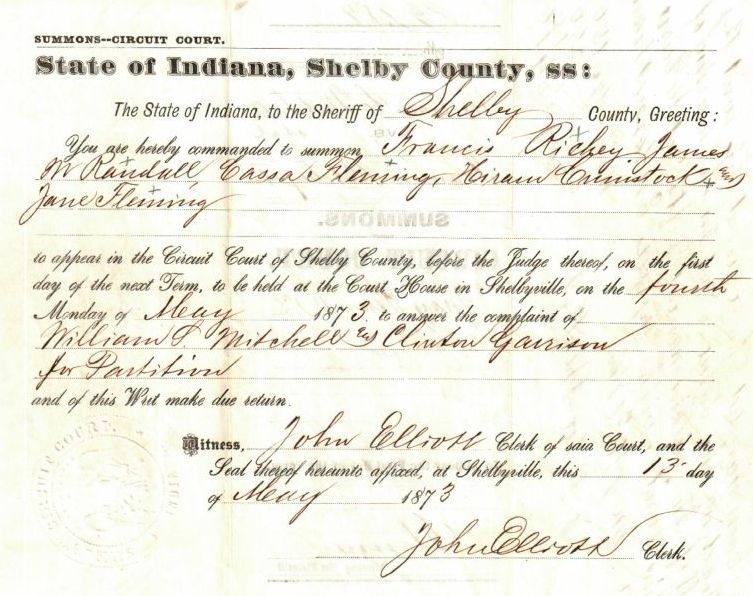 SUMMONS--CIRCUIT COURT.
State of Indiana, Shelby County, ss:
The State of Indiana, to the Sheriff of Shelby County, Greeting:
You are hereby commanded to summon Francis Richey James
W Randall Cassa Fleming, Hiram Cumstock &
Jane Fleming
SUMMONS.
to appear in the Circuit Court of Shelby County, before the Judge thereof, on the first
day of the next Term, to be held at the Court House in Shelbyville, on the fourth
Monday of May 1873. to answer the complaint of
William S. Mitchell & Clinton Garrison
for Partition
and of this Writ make due return.
Witness, John Elliott Clerk of said Court, and the
Seal thereof hereunto affixed, at Shelbyville, this 13 day
of May 1873
John Elliott Clerk.